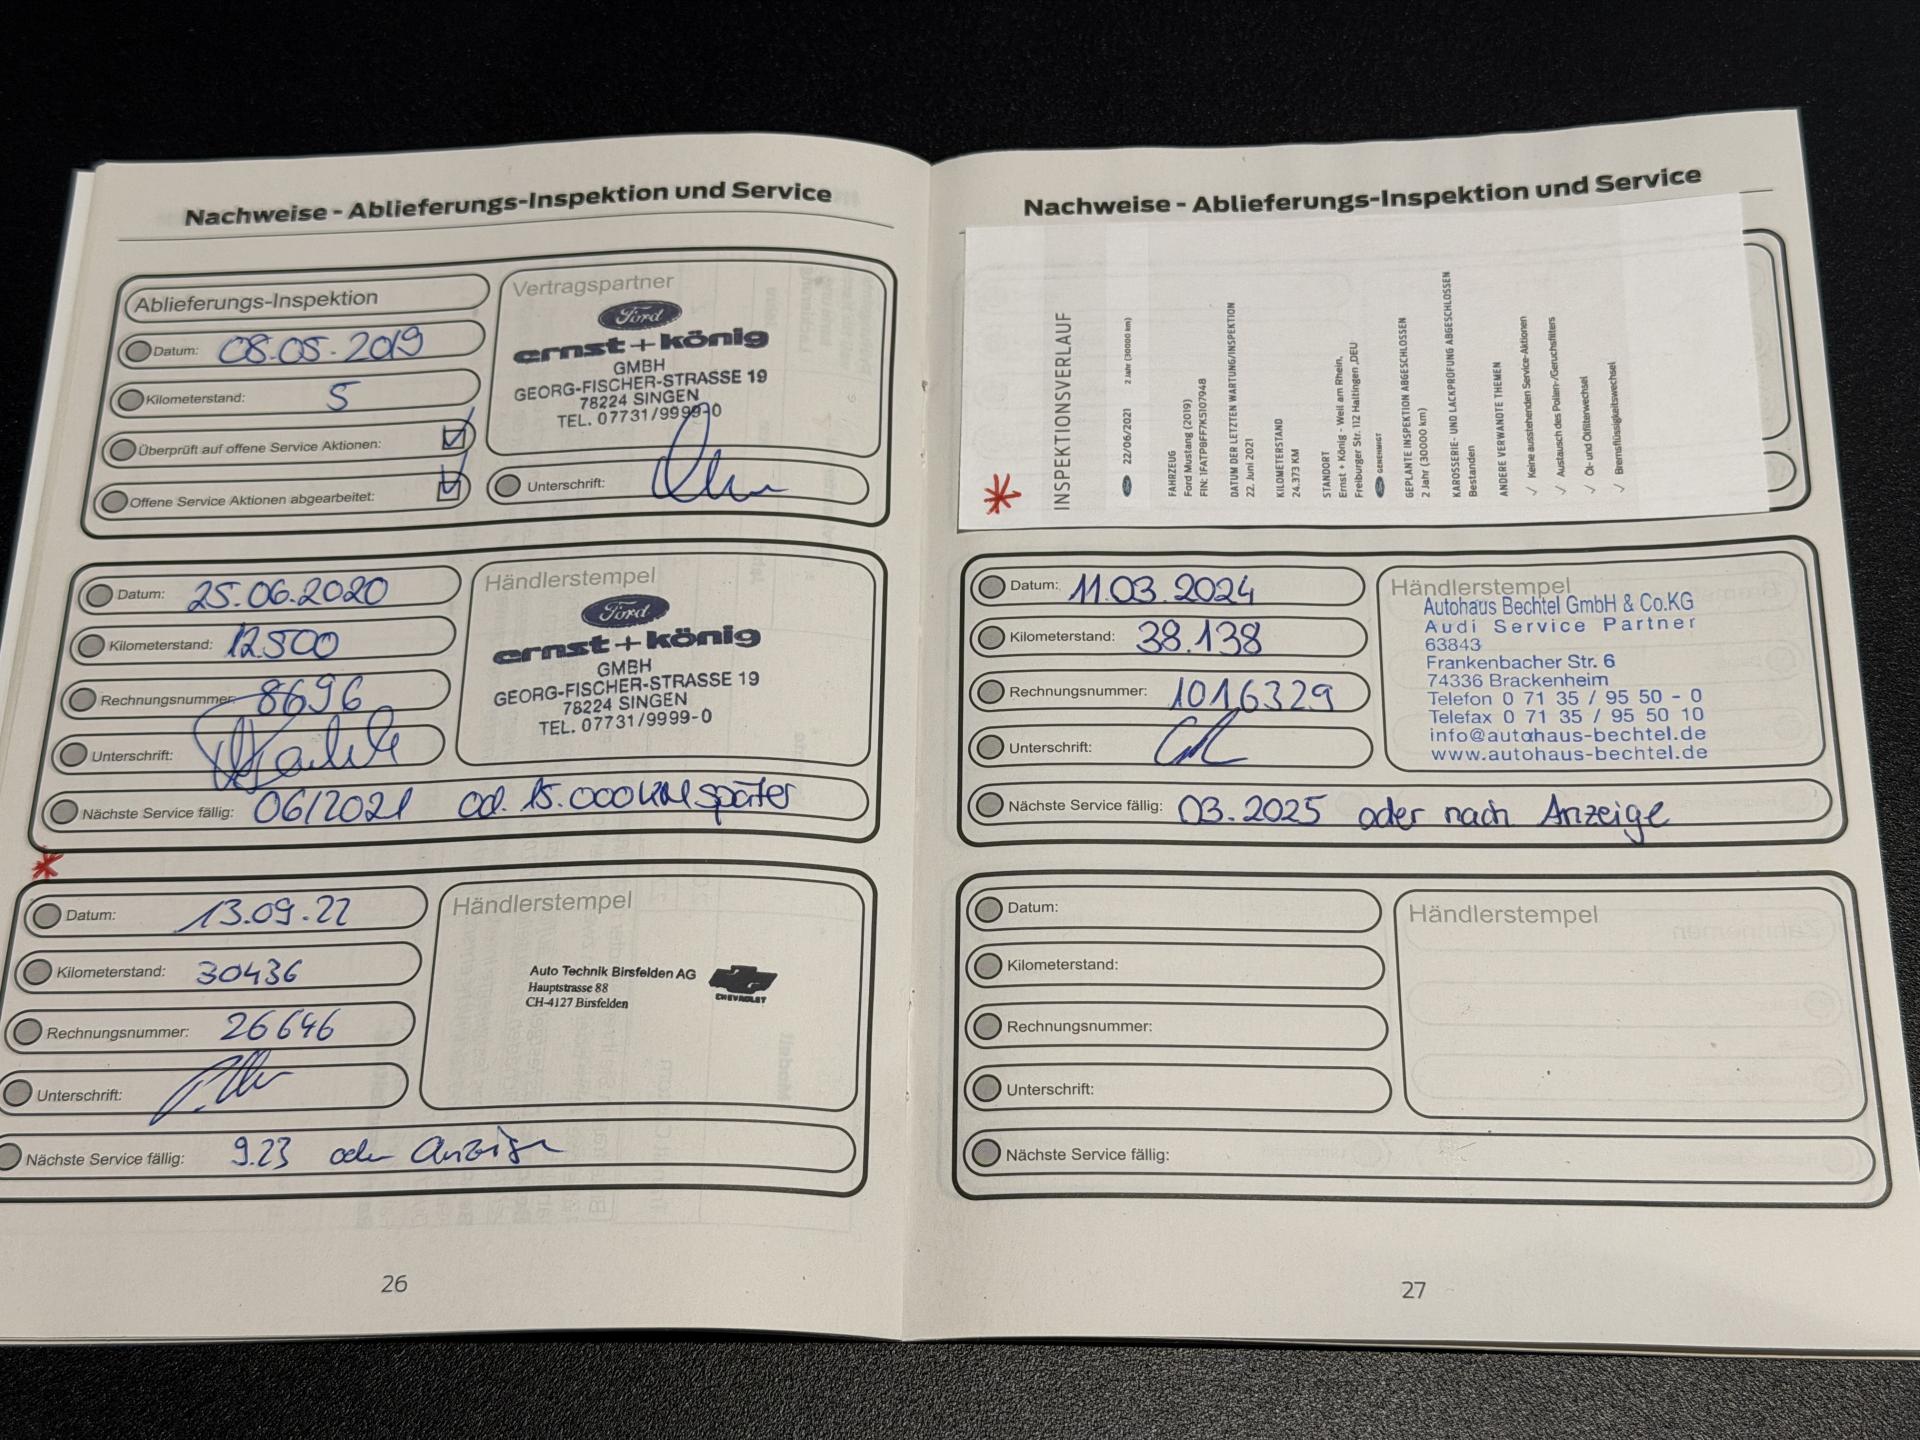 Nachweise - Ablieferungs-Inspektion und Service
Ablieferungs-Inspektion
Datum: 08.05.2019
Kilometerstand: 5
Überprüft auf offene Service Aktionen:
Offene Service Aktionen abgearbeitet:
Vertragspartner
Ford
ernst + könig
GMBH
GEORG-FISCHER-STRASSE 19
78224 SINGEN
TEL. 07731/9999-0
Unterschrift:
Datum: 25.06.2020
Kilometerstand: 12500
Rechnungsnummer: 8696
Unterschrift:
Nächste Service fällig: 06/2021 od. 15.000 KM später
Händlerstempel
Ford
ernst + könig
GMBH
GEORG-FISCHER-STRASSE 19
78224 SINGEN
TEL. 07731/9999-0
*
Datum: 13.09.22
Kilometerstand: 30436
Rechnungsnummer: 26646
Unterschrift:
Nächste Service fällig: 9.23 oder Anzeige
Händlerstempel
Auto Technik Birsfelden AG
Hauptstrasse 88
CH-4127 Birsfelden
CHEVROLET
26
Nachweise - Ablieferungs-Inspektion und Service
*
INSPEKTIONSVERLAUF
Ford 22/06/2021 2 Jahr (30000 km)
FAHRZEUG
Ford Mustang (2019)
FIN: 1FATP8FF7K5107948
DATUM DER LETZTEN WARTUNG/INSPEKTION
22. Juni 2021
KILOMETERSTAND
24.373 KM
STANDORT
Ernst + König - Weil am Rhein,
Freiburger Str. 112 Haltingen ,DEU
Ford GENEHMIGT
GEPLANTE INSPEKTION ABGESCHLOSSEN
2 Jahr (30000 km)
KAROSSERIE- UND LACKPRÜFUNG ABGESCHLOSSEN
Bestanden
ANDERE VERWANDTE THEMEN
✓ Keine ausstehenden Service-Aktionen
✓ Austausch des Pollen-/Geruchsfilters
✓ Öl- und Ölfilterwechsel
✓ Bremsflüssigkeitswechsel
Datum: 11.03.2024
Kilometerstand: 38.138
Rechnungsnummer: 1016329
Unterschrift:
Nächste Service fällig: 03.2025 oder nach Anzeige
Händlerstempel
Autohaus Bechtel GmbH & Co.KG
Audi Service Partner
63843
Frankenbacher Str. 6
74336 Brackenheim
Telefon 0 71 35 / 95 50 - 0
Telefax 0 71 35 / 95 50 10
info@autohaus-bechtel.de
www.autohaus-bechtel.de
Datum:
Kilometerstand:
Rechnungsnummer:
Unterschrift:
Nächste Service fällig:
Händlerstempel
27